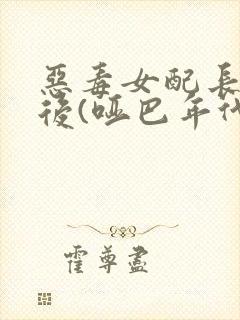 惡毒女配長
後(啞巴年代
霍尊盡